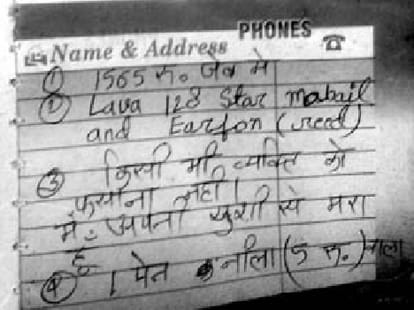 PHONES
Name & Address
① 1565 रु० जेब मे
② Lava 128 Star mabail
and Earfon (      )
③ किसी भी व्यक्ति को
फसाना नही।
मैं अपनी खुशी से मरा
हूँ
④ 1 पेन नीला (5 रु.) वाला